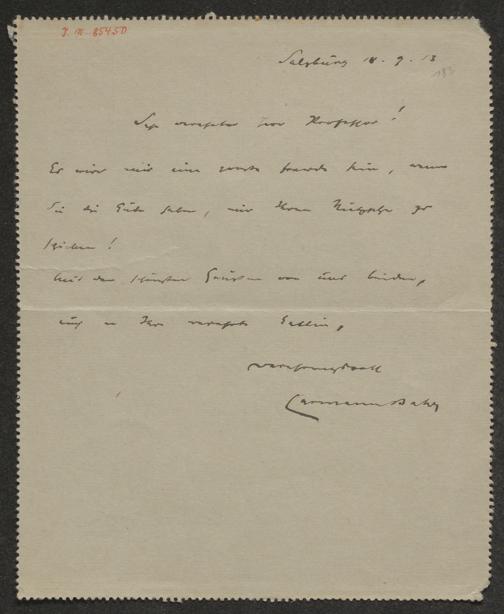 J. N. 85450
Salzburg 18. 9. 13
183
Sehr verehrter Herr Professor!
Es wird mir eine große Freude sein, wenn
Sie die Güte haben, mir Ihren Nietzsche zu
schicken!
Mit den schönsten Grüßen von uns beiden,
auch an Ihre verehrte Gattin,
verehrungsvoll
Hermann Bahr